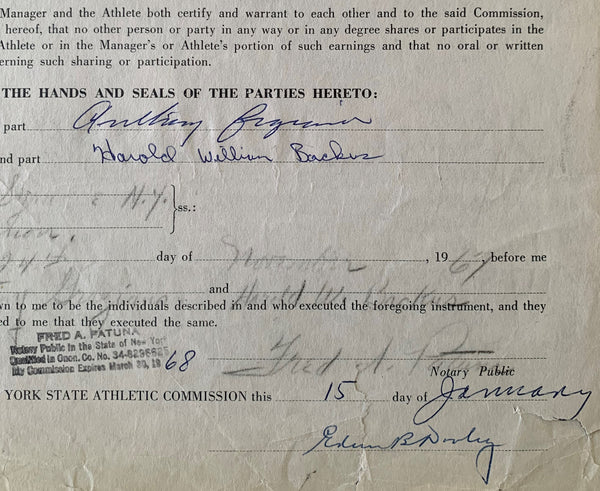 Manager and the Athlete both certify and warrant to each other and to the said Commission,
hereof, that no other person or party in any way or in any degree shares or participates in the
Athlete or in the Manager's or Athlete's portion of such earnings and that no oral or written
erning such sharing or participation.
THE HANDS AND SEALS OF THE PARTIES HERETO:
part Anthony
nd part Harold William Backus
N.Y.
}ss.:
day of November, 1967 before me
and Harold W. Backus
wn to me to be the individuals described in and who executed the foregoing instrument, and they
ed to me that they executed the same.
FRED A. PATUNA
Notary Public in the State of New York
Qualified in Onon. Co. No.
My Commission Expires March 30, 1968
Fred A.
Notary Public
YORK STATE ATHLETIC COMMISSION this 15 day of January
Edwin B Dooley